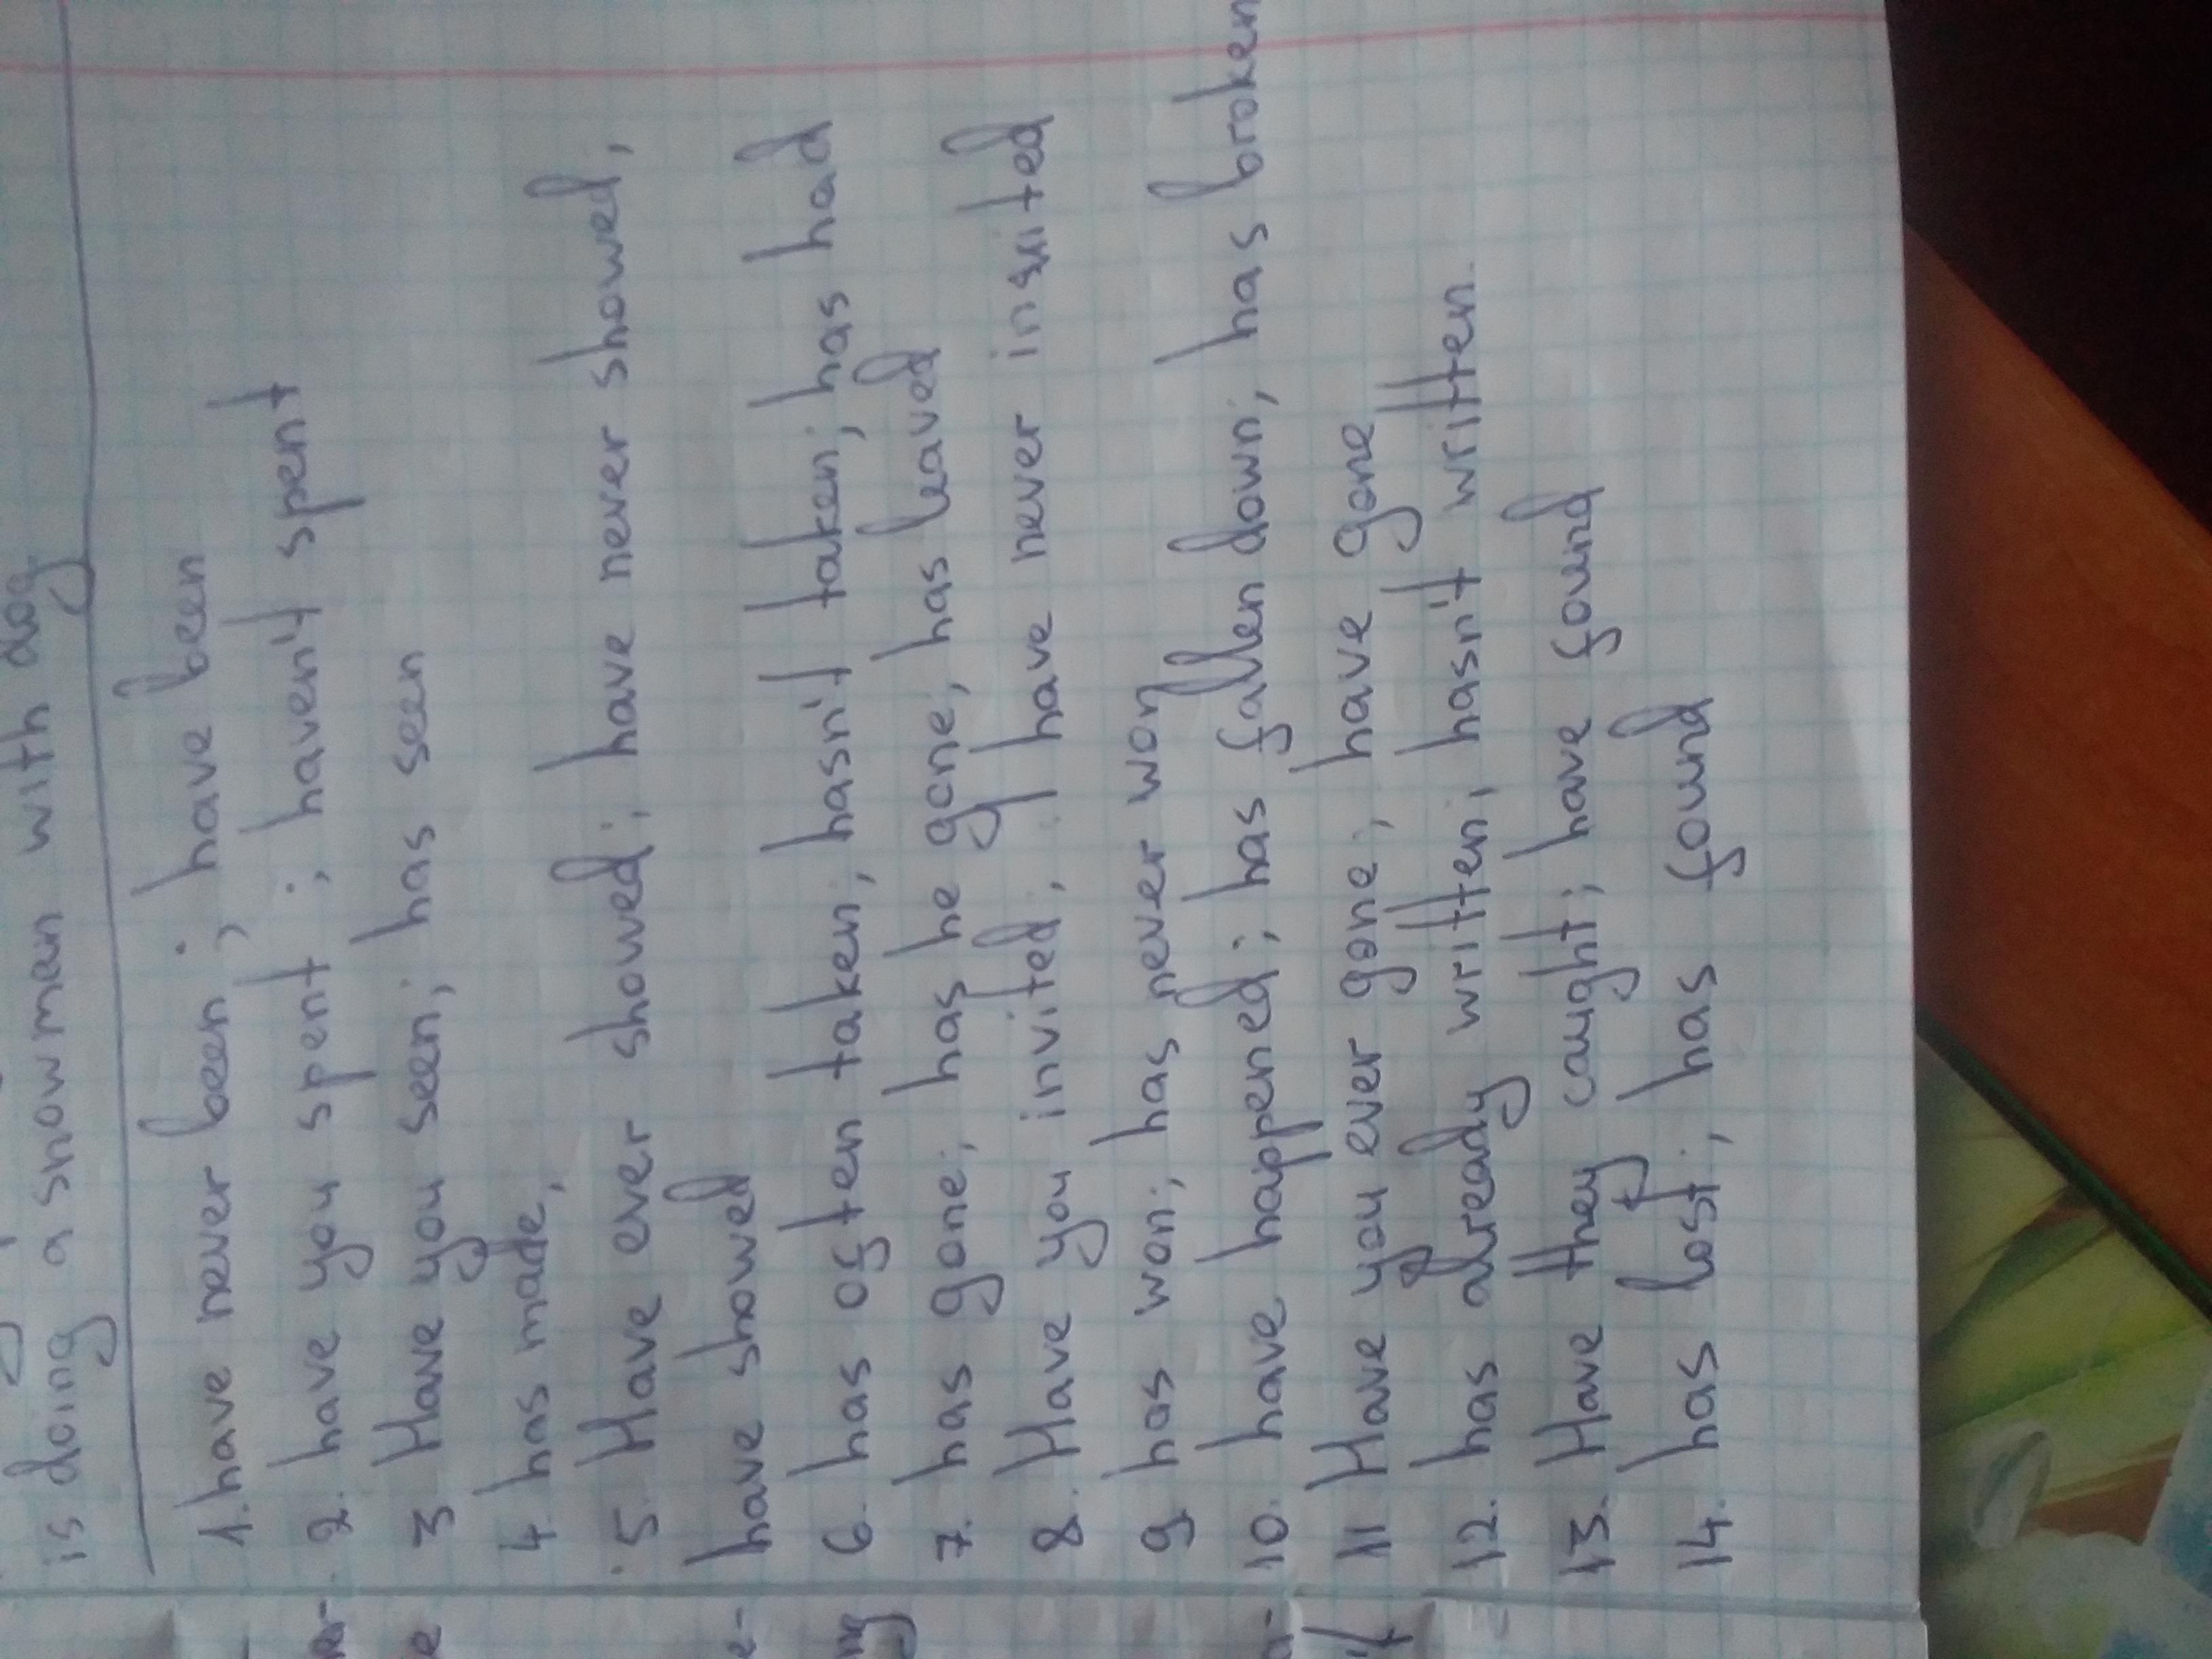 is doing a snowman with dog
1. have never been; have been
2. have you spent; haven't spent
3 Have you seen; has seen
4. has made;
5. Have ever showed; have never showed;
have showed
6. has often taken; hasn't taken; has had
7. has gone; has he gone; has leaved
8. Have you invited; I have never invited
9. has won; has never won
10. have happened; has fallen down; has broken
11 Have you ever gone; have gone
12. has already written; hasn't written.
13. Have they caught; have found
14. has lost; has found